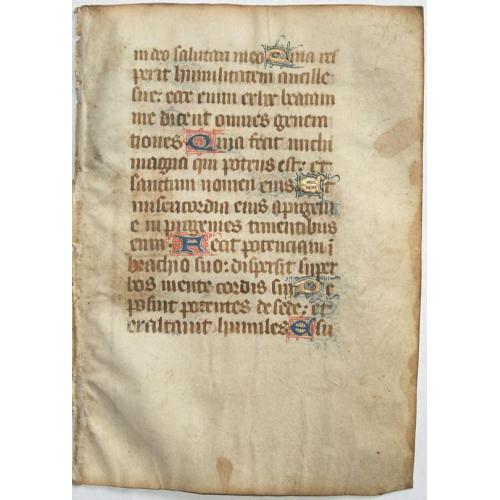 in deo salutari meo Quia res
pexit humilitatem ancille
sue: ecce enim ex hoc beatam
me dicent omnes genera
tiones Quia fecit michi
magna qui potens est: et
sanctum nomen eius Et
misericordia eius a progeni
e in progenies timentibus
eum: Fecit potenciam i
brachio suo: dispersit super
bos mente cordis sui De
posuit potentes de sede: et
exaltavit humiles Esu